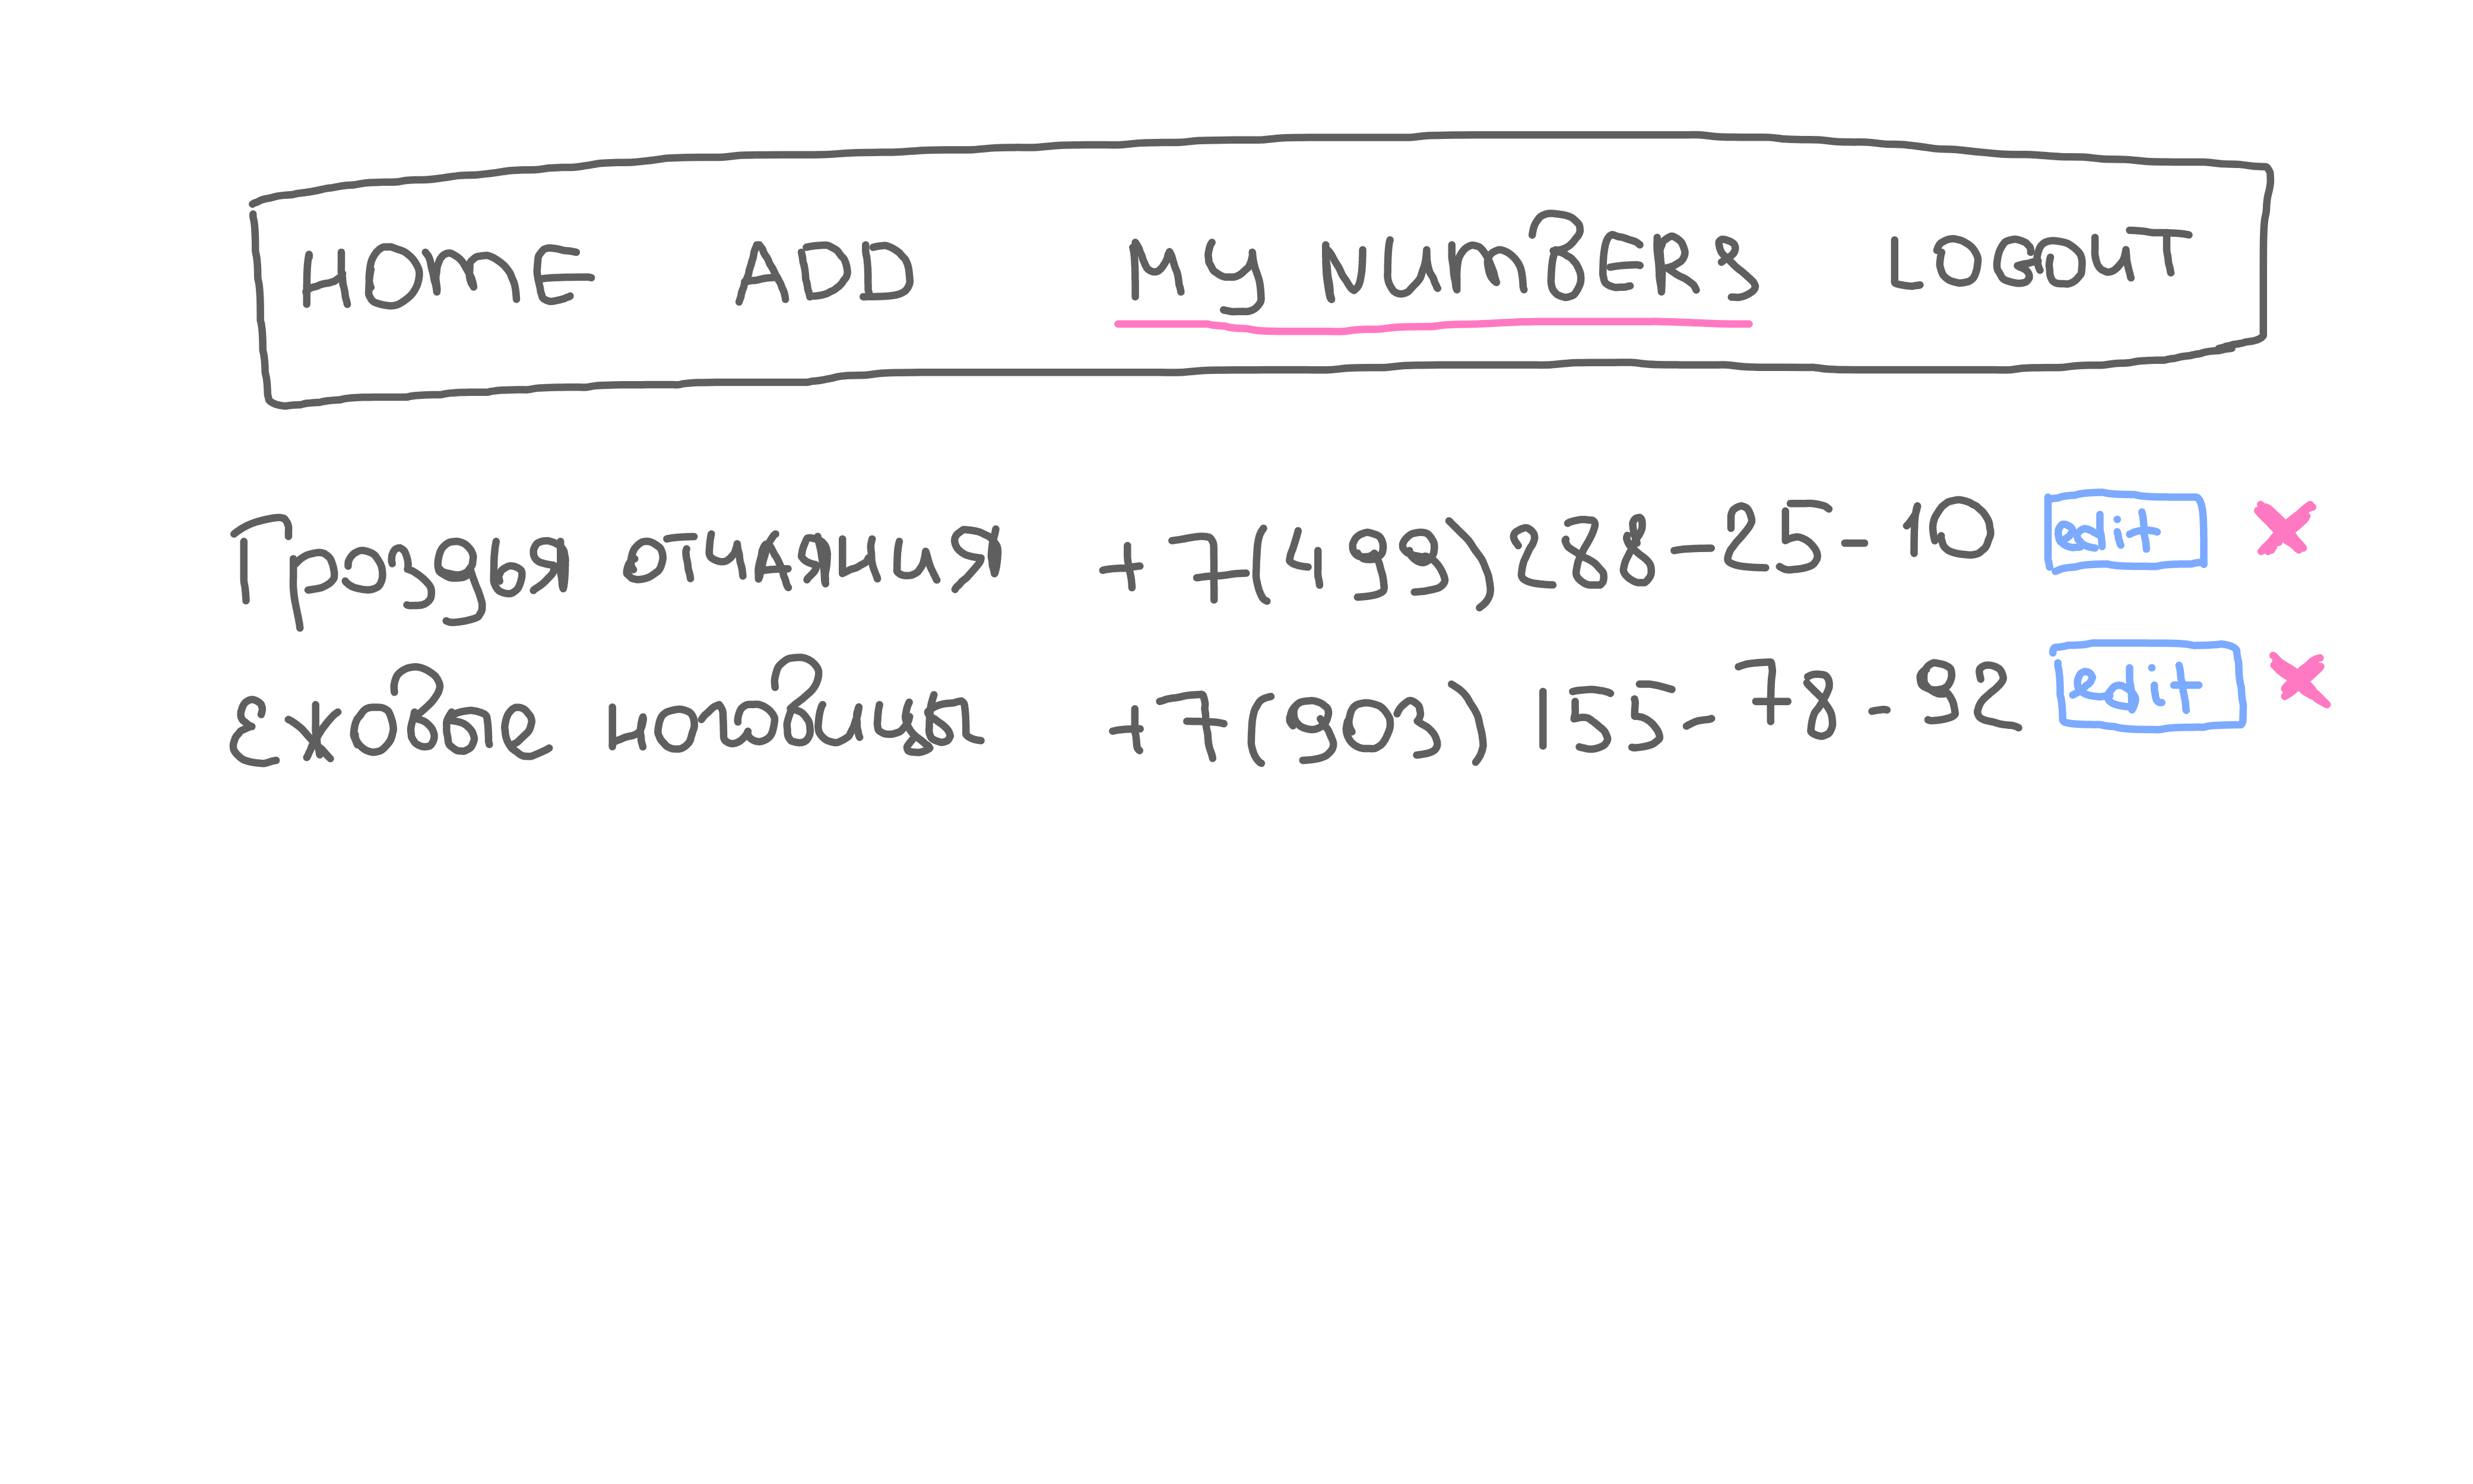 HOME ADD MY NUMBERS LOGOUT
Гроздья отчаяния +7(499)288-25-10 edit
Ежовые ноябри +7(909)155-78-92 edit